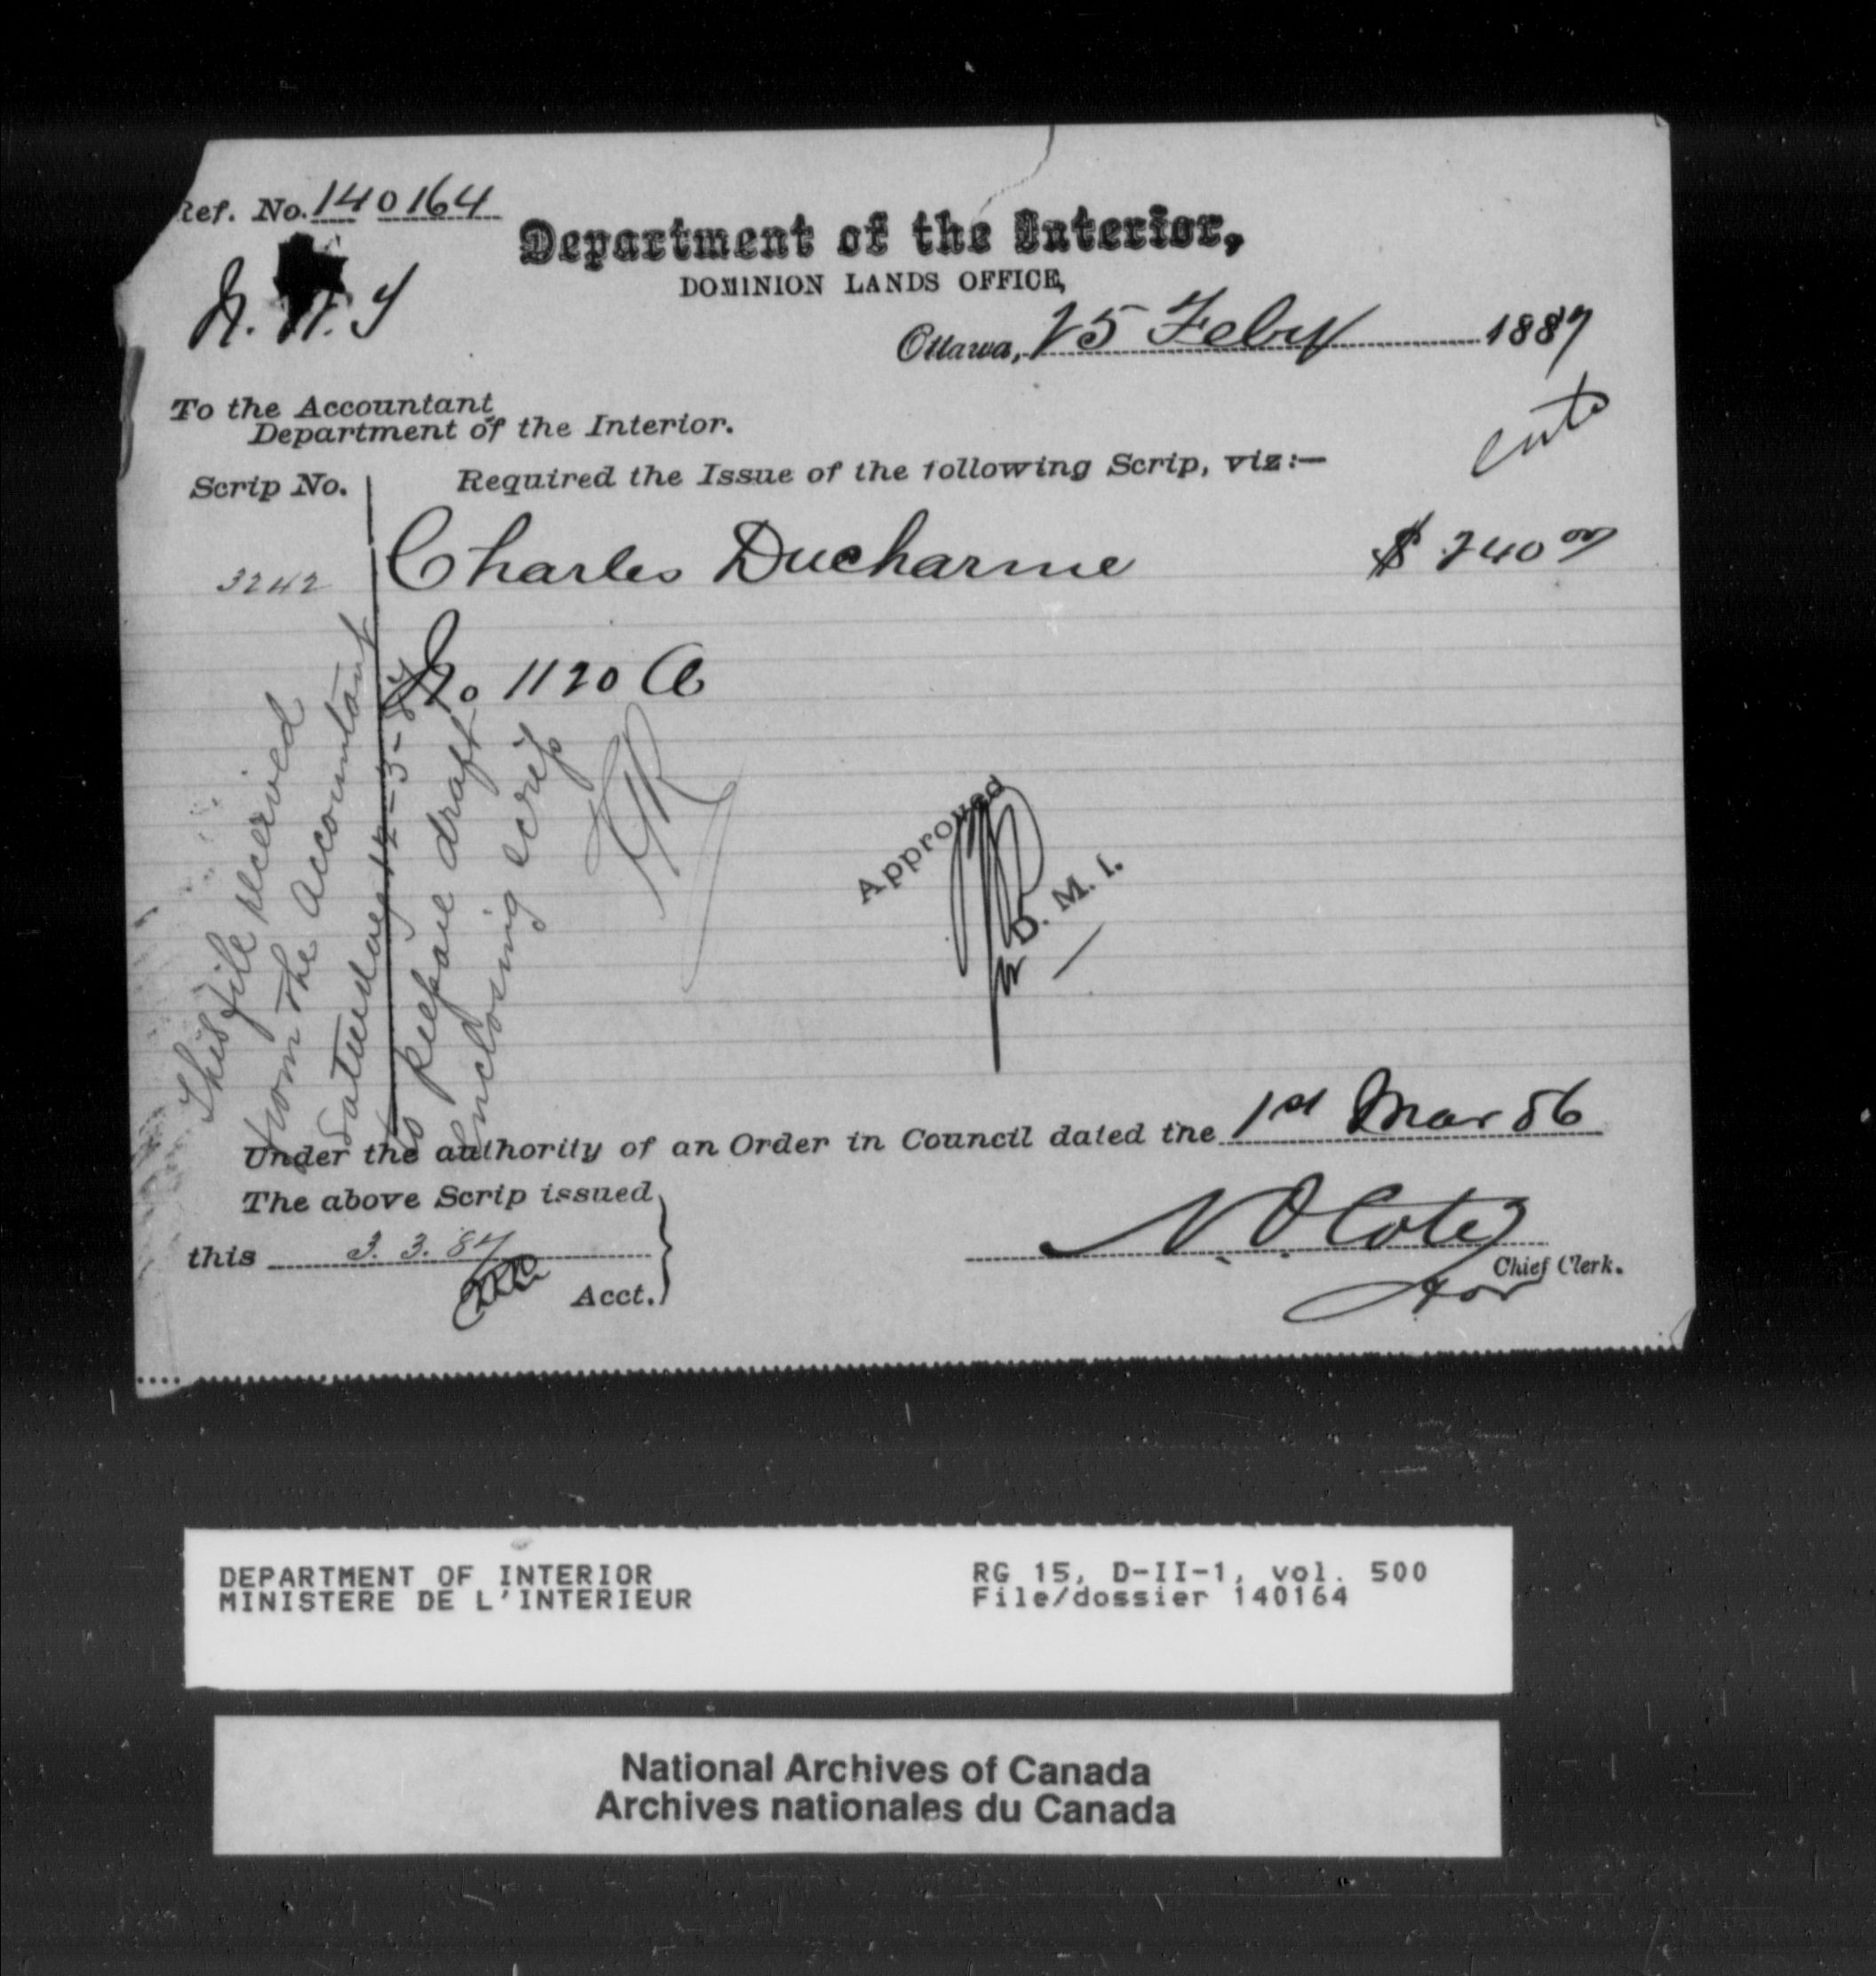 Ref. No. 140164
N. W. T
Department of the Interior,
DOMINION LANDS OFFICE,
Ottawa, 25 Feby 1887
To the Accountant
Department of the Interior.
Scrip No.
Required the Issue of the following Scrip, viz:—
3242 Charles Ducharme $ 240 00
No 1120 A
This file received
from the Accountant
Saturday 12-3-87
to prepare draft
enclosing scrip
Approved
for D. M. I.
Under the authority of an Order in Council dated the 1st Mar 86
The above Scrip issued
this 3. 3. 87
Acct.
N. O. Coté
Chief Clerk.
for
DEPARTMENT OF INTERIOR
MINISTERE DE L'INTERIEUR
RG 15, D-II-1, vol. 500
File/dossier 140164
National Archives of Canada
Archives nationales du Canada